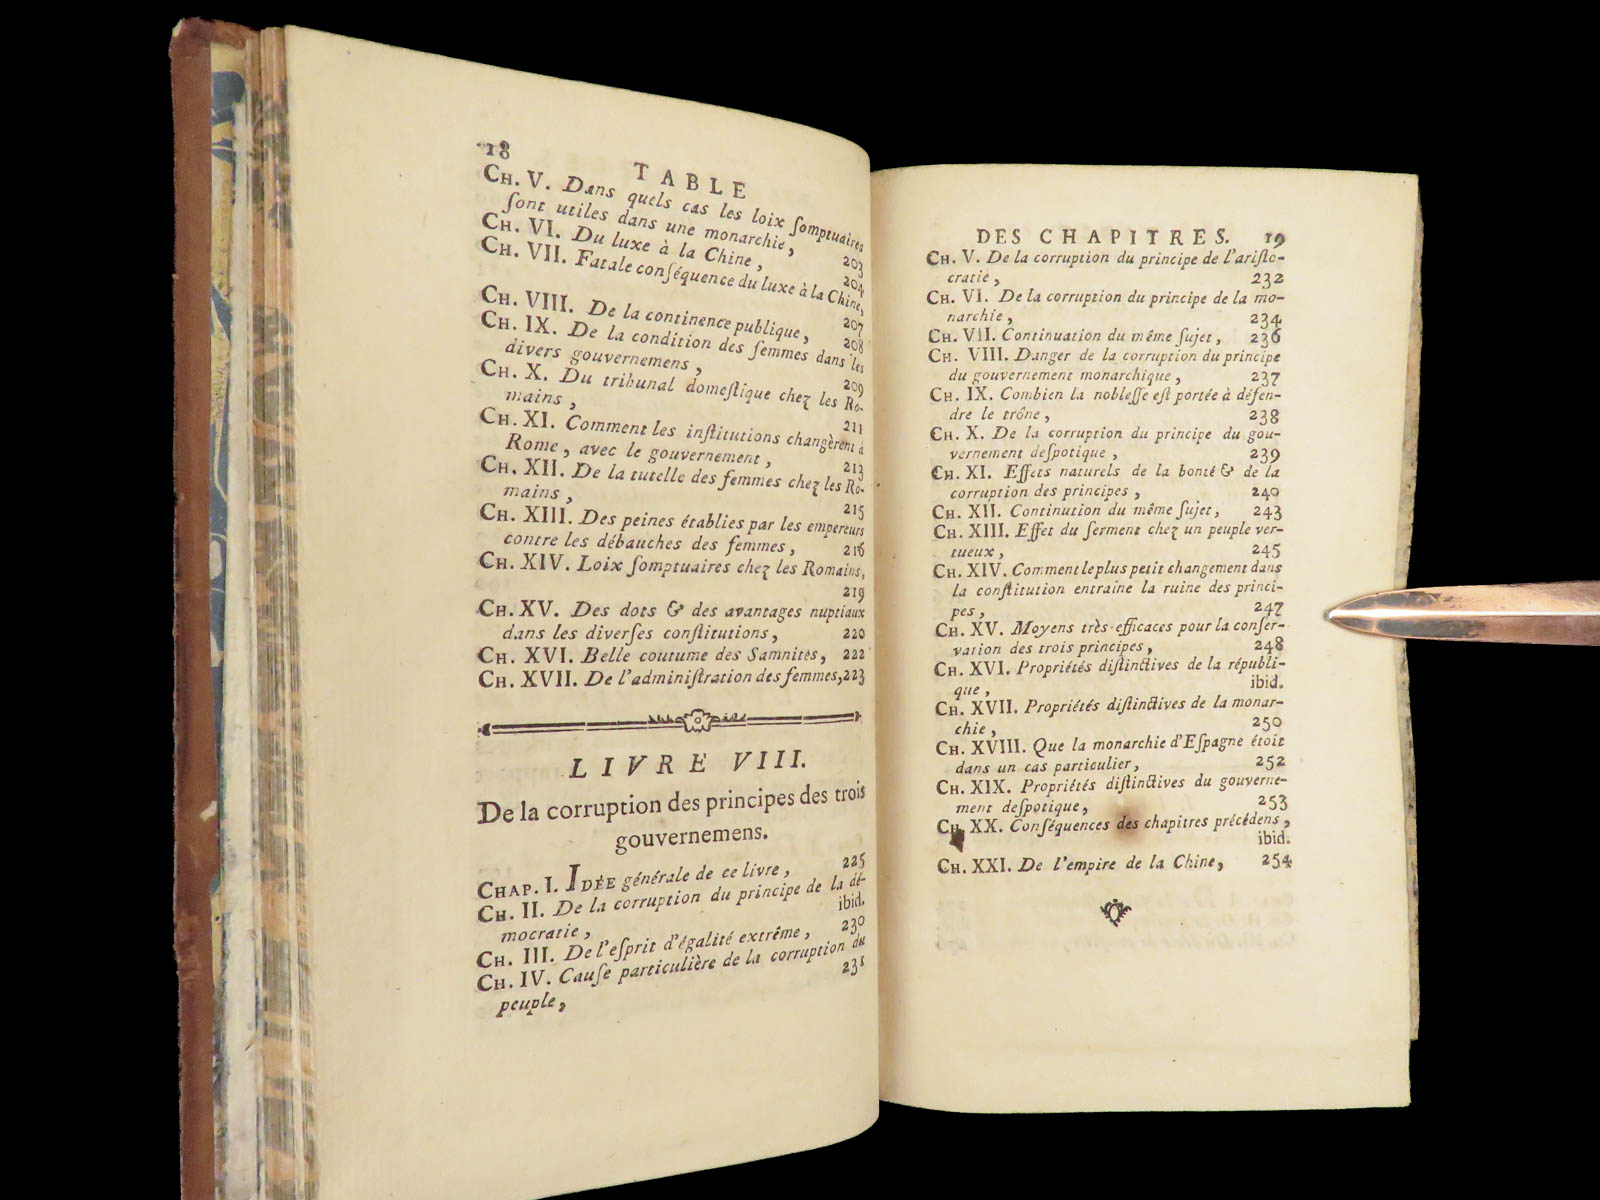 18
TABLE
CH. V. Dans quels cas les loix ſomptuaires
ſont utiles dans une monarchie, 203
CH. VI. Du luxe à la Chine, 204
CH. VII. Fatale conſéquence du luxe à la Chine,
207
CH. VIII. De la continence publique, 208
CH. IX. De la condition des femmes dans les
divers gouvernemens, 209
CH. X. Du tribunal domeſtique chez les Ro-
mains, 211
CH. XI. Comment les inſtitutions changèrent à
Rome, avec le gouvernement, 213
CH. XII. De la tutelle des femmes chez les Ro-
mains, 215
CH. XIII. Des peines établies par les empereurs
contre les débauches des femmes, 216
CH. XIV. Loix ſomptuaires chez les Romains,
219
CH. XV. Des dots & des avantages nuptiaux
dans les diverſes conſtitutions, 220
CH. XVI. Belle coutume des Samnites, 222
CH. XVII. De l'adminiſtration des femmes, 223
LIVRE VIII.
De la corruption des principes des trois
gouvernemens.
CHAP. I. IDÉE générale de ce livre, 225
CH. II. De la corruption du principe de la dé-
mocratie, ibid.
CH. III. De l'eſprit d'égalité extrême, 230
CH. IV. Cauſe particulière de la corruption du
peuple, 231
DES CHAPITRES. 19
CH. V. De la corruption du principe de l'ariſto-
cratie, 232
CH. VI. De la corruption du principe de la mo-
narchie, 234
CH. VII. Continuation du même ſujet, 236
CH. VIII. Danger de la corruption du principe
du gouvernement monarchique, 237
CH. IX. Combien la nobleſſe eſt portée à défen-
dre le trône, 238
CH. X. De la corruption du principe du gou-
vernement deſpotique, 239
CH. XI. Effets naturels de la bonté & de la
corruption des principes, 240
CH. XII. Continution du même ſujet, 243
CH. XIII. Effet du ſerment chez un peuple ver-
tueux, 245
CH. XIV. Comment le plus petit changement dans
la conſtitution entraine la ruine des princi-
pes, 247
CH. XV. Moyens très-efficaces pour la conſer-
vation des trois principes, 248
CH. XVI. Propriétés diſtinctives de la républi-
que, ibid.
CH. XVII. Propriétés diſtinctives de la monar-
chie, 250
CH. XVIII. Que la monarchie d'Eſpagne étoit
dans un cas particulier, 252
CH. XIX. Propriétés diſtinctives du gouverne-
ment deſpotique, 253
CH. XX. Conſéquences des chapitres précédens,
ibid.
CH. XXI. De l'empire de la Chine, 254